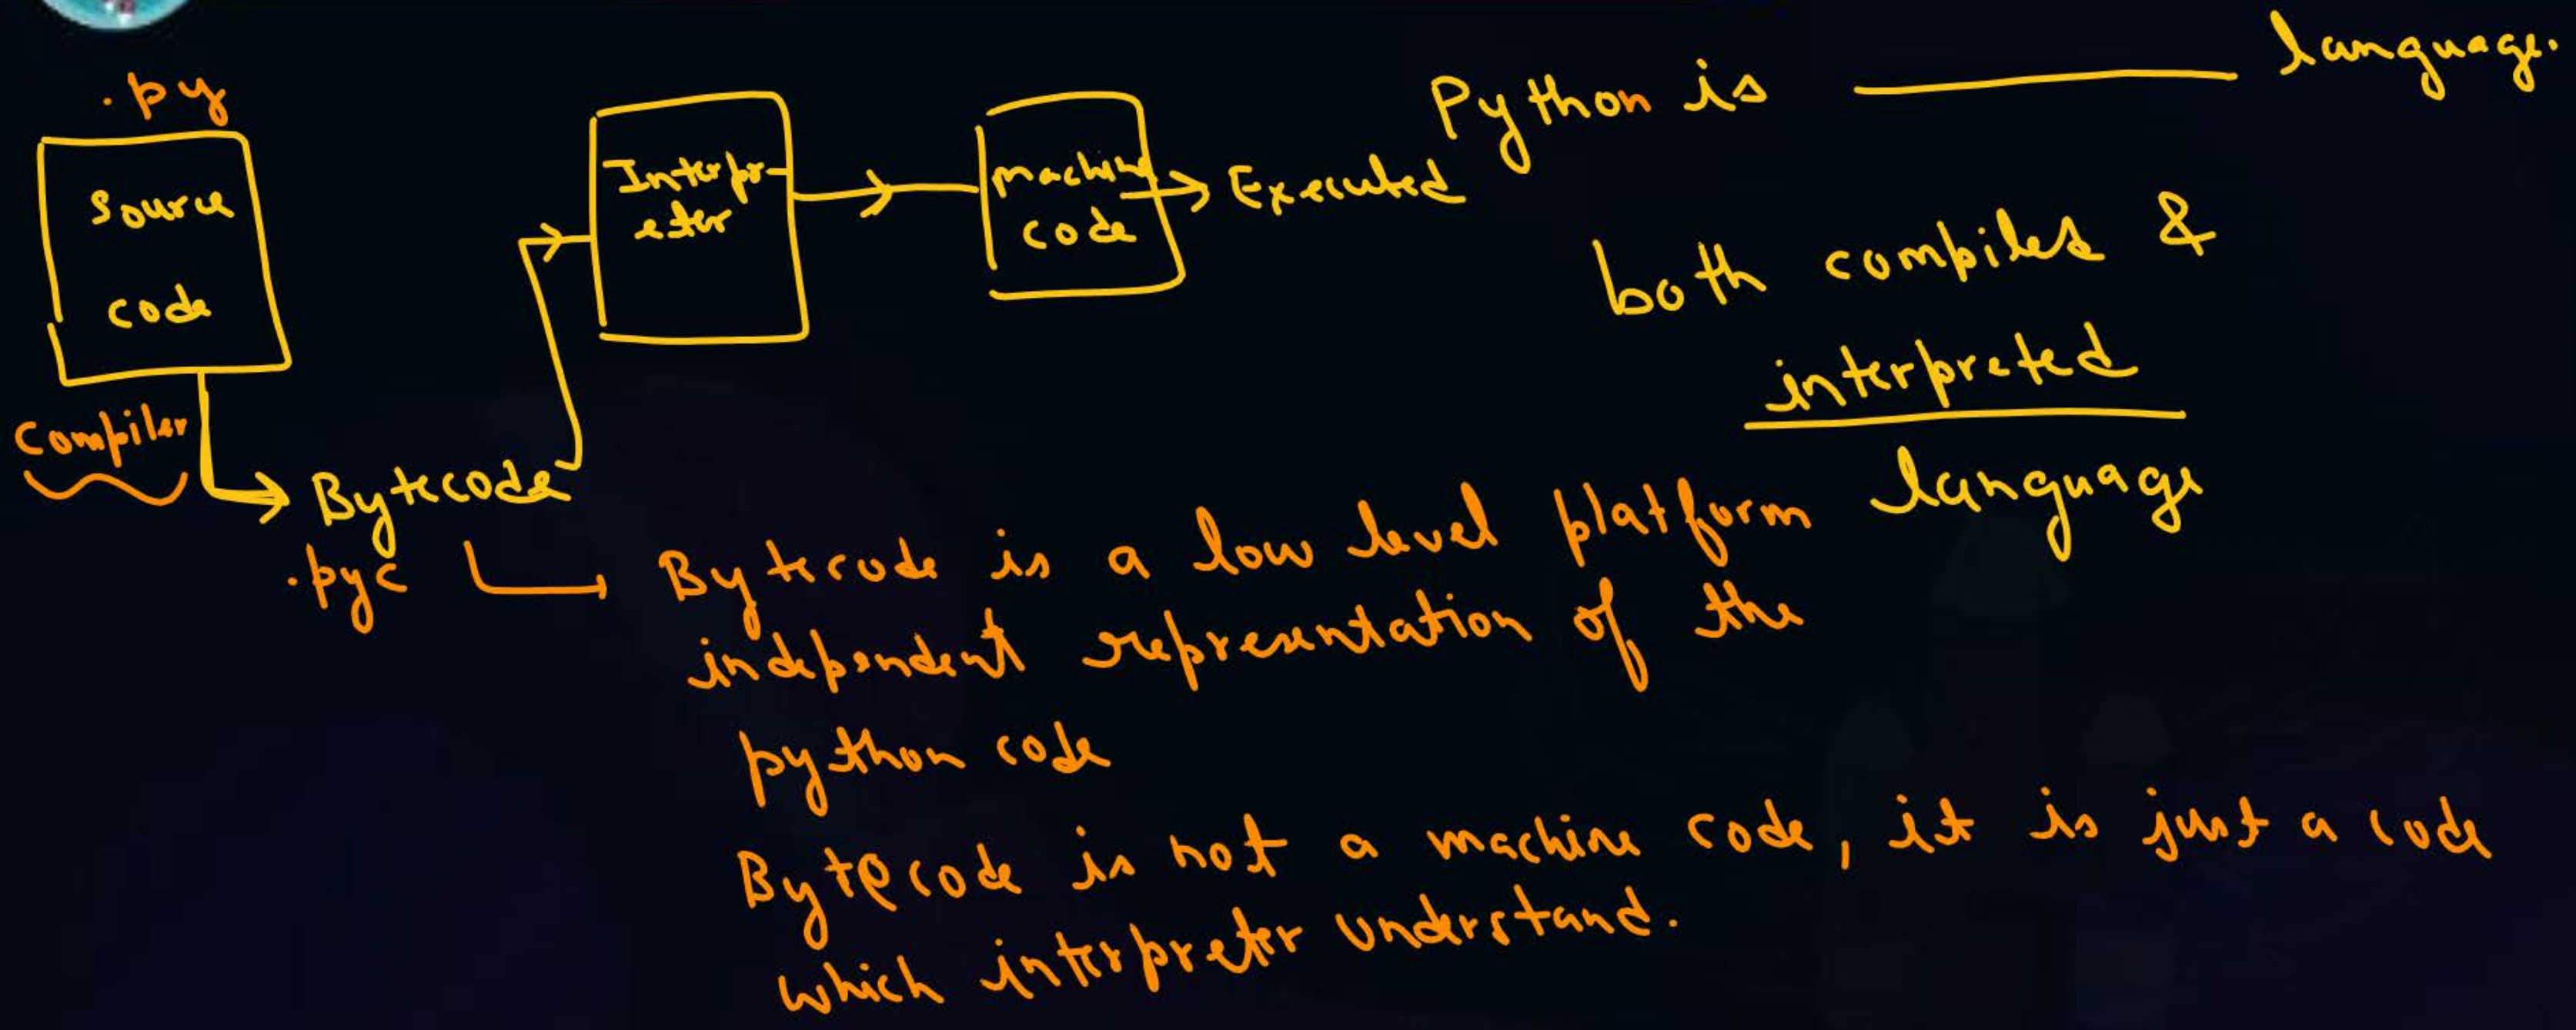 .py
Source
code
Compiler
Bytecode
.pyc
Interpr-
eter
machine
code
Executed
Python is ________ language.
both compiled &
interpreted
language
Bytecode is a low level platform
independent representation of the
python code
Bytecode is not a machine code, it is just a code
which interpreter understand.